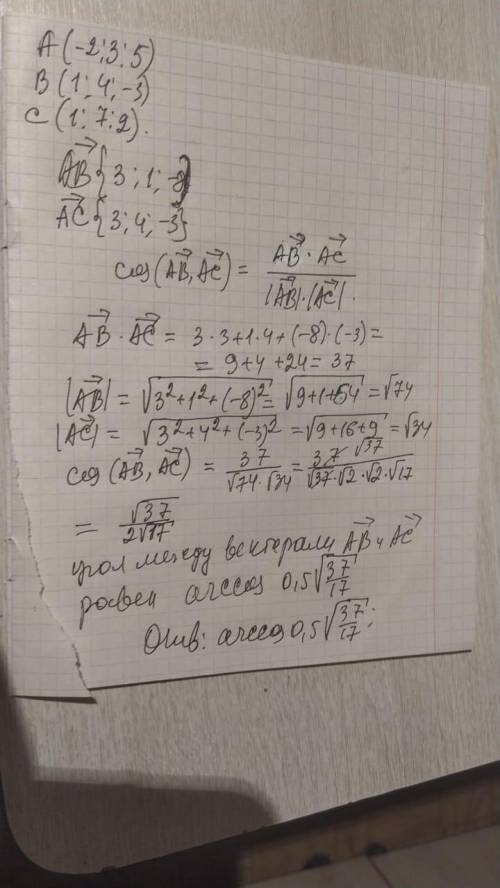 A (-2; 3; 5)
B (1; 4; -3)
C (1; 7; 2).
AB→ {3; 1; -8}
AC→ {3; 4; -3}
cos (AB→, AC→) = (AB→ · AC→) / (|AB→| · |AC→|).
AB→ · AC→ = 3 · 3 + 1 · 4 + (-8) · (-3) =
= 9 + 4 + 24 = 37
|AB→| = √(3² + 1² + (-8)²) = √(9 + 1 + 64) = √74
|AC→| = √(3² + 4² + (-3)²) = √(9 + 16 + 9) = √34
cos (AB→, AC→) = 37 / (√74 · √34) = 37 √37 / (√37 · √2 · √2 · √17)
= √37 / (2√17)
угол между векторами AB→ и AC→
равен arccos 0,5 √(37/17)
Отв: arccos 0,5 √(37/17);